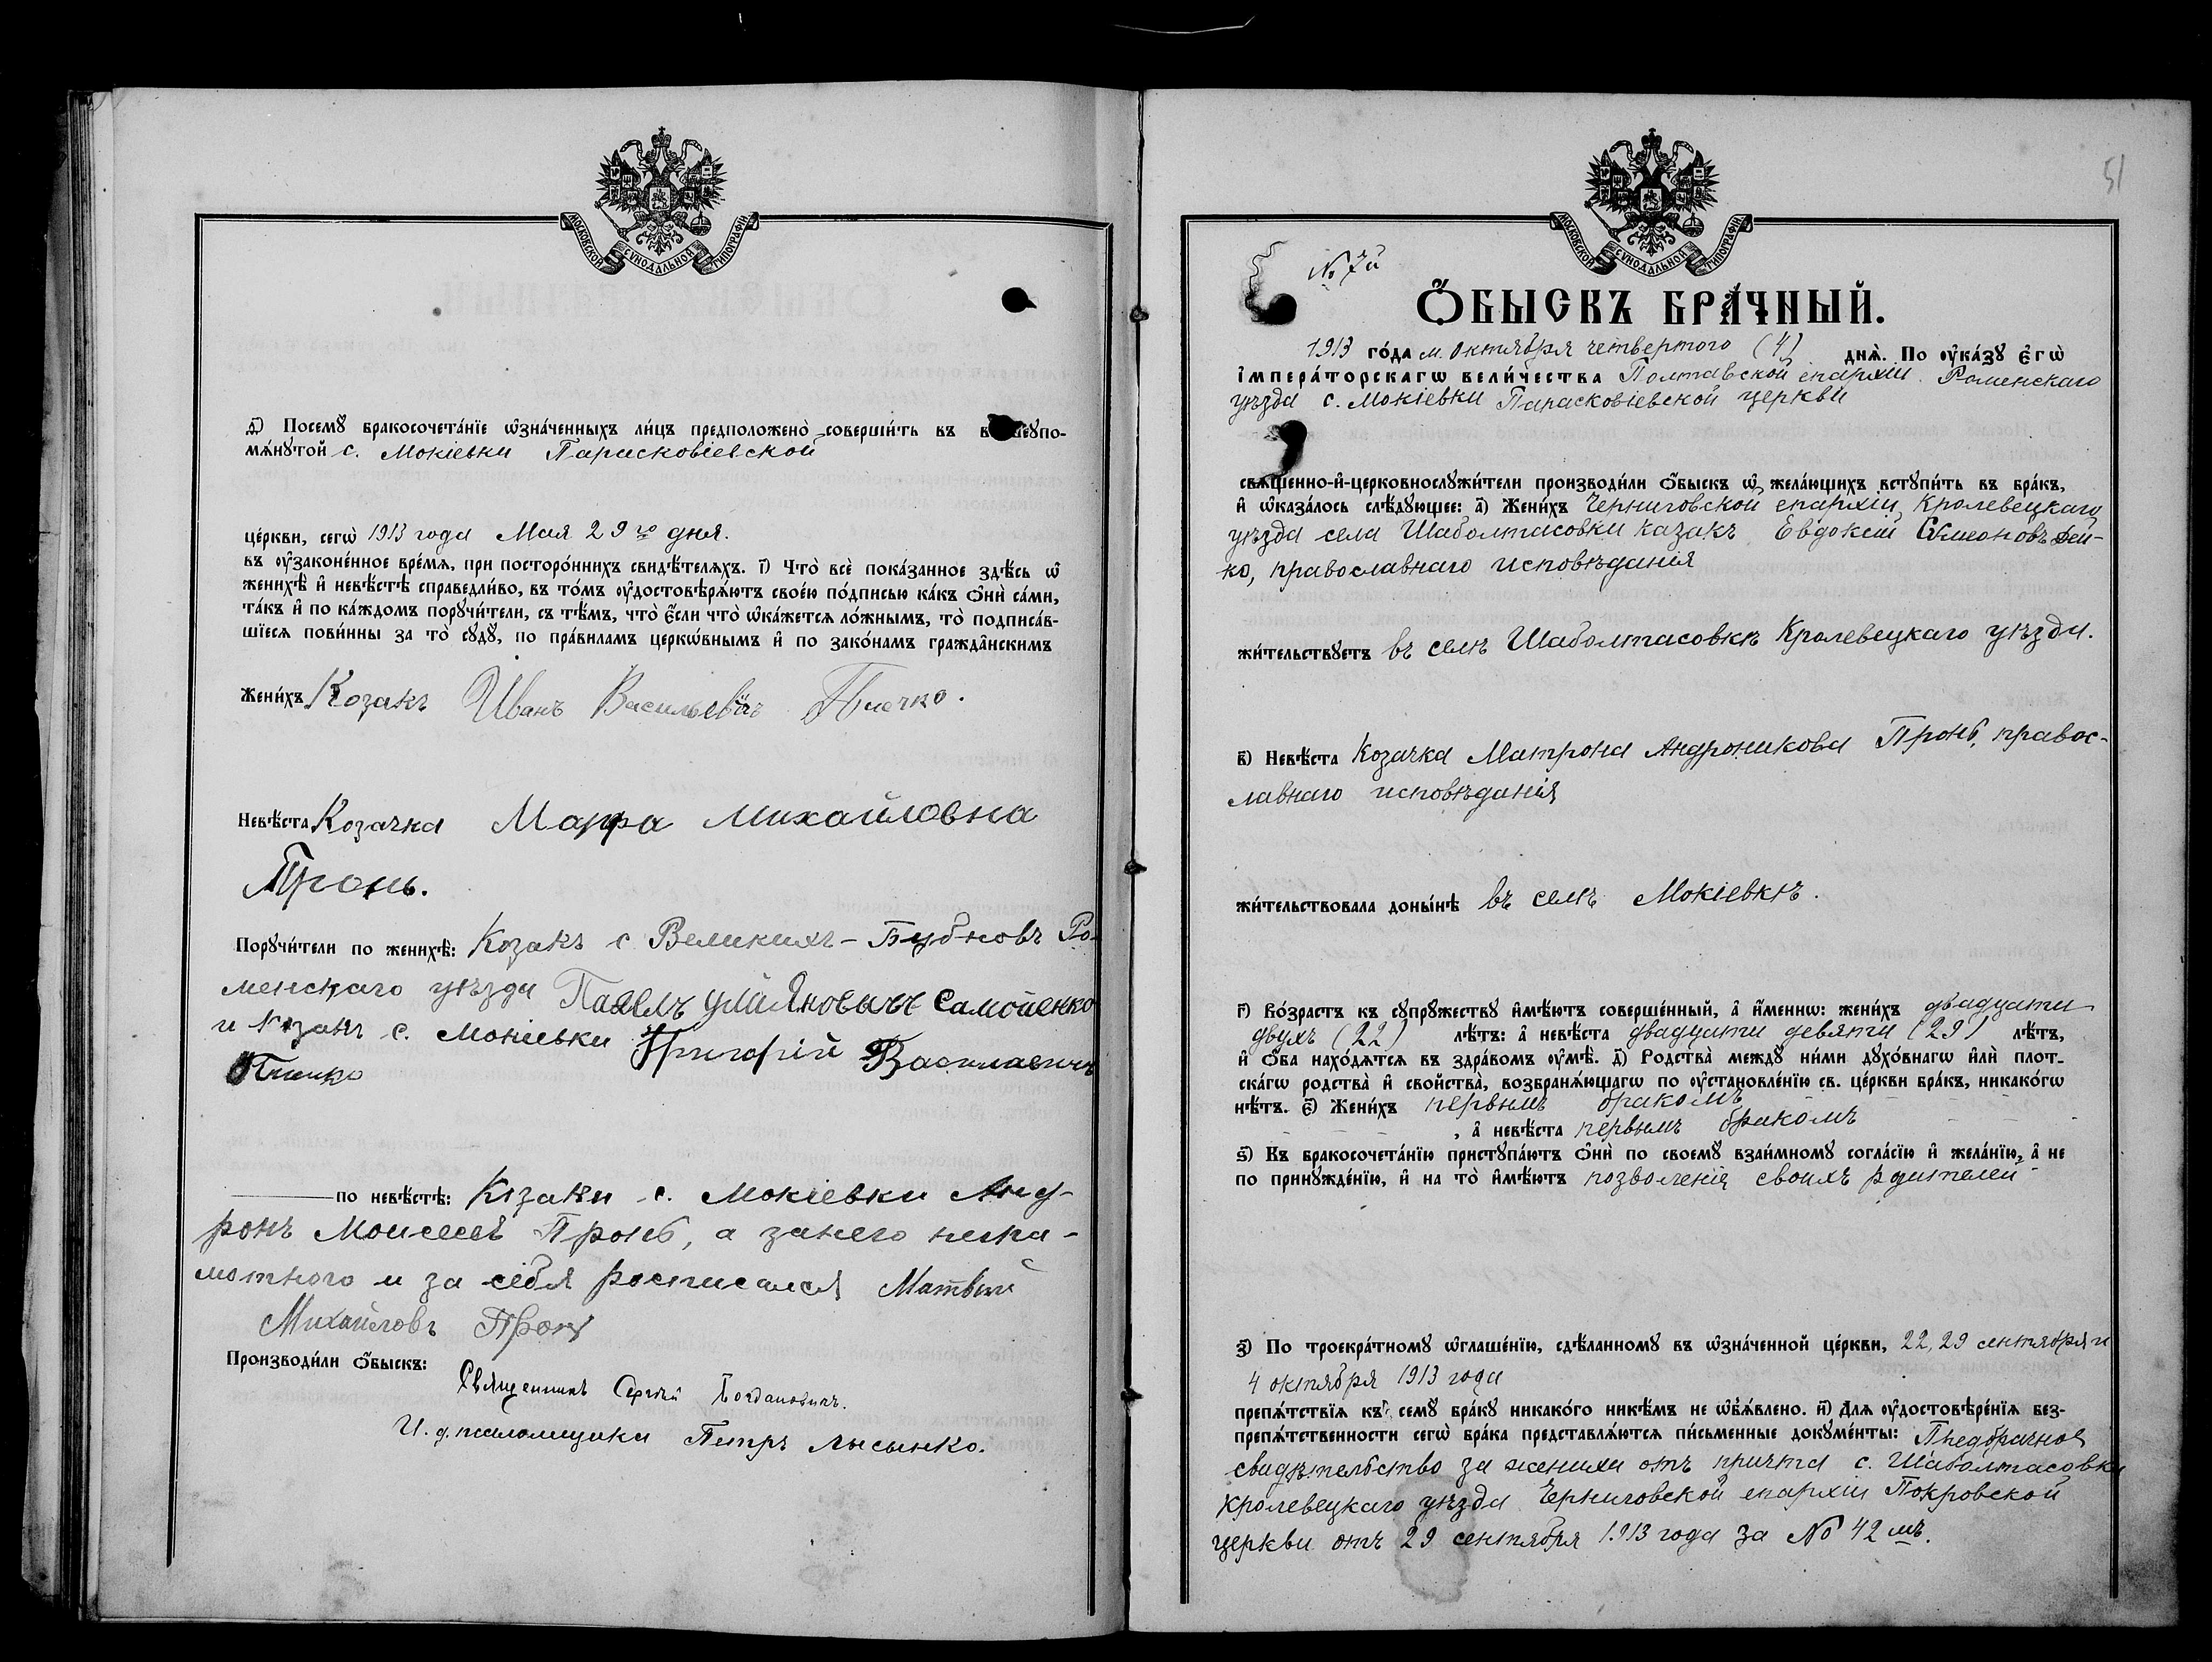 МОСКОВСКОЙ СѴНОДАЛЬНОЙ ТИПОГРАФІИ
д҃і) Посемꙋ бракосочета́нїе ѡ҆зна́ченныхъ ли́цъ предположено̀ соверши́ть въ вышеꙋпо-
мѧ́нꙋтой с. Мокіевки Парасковіевской
це́ркви, сегѡ̀ 1913 года Мая 29го дня.
въ ᲂу҆законе́нное вре́мѧ, при посторо́ннихъ свидѣ́телѧхъ. і҃) Что̀ всѐ пока́занное здѣ́сь ѡ҆
женихѣ̀ и҆ невѣ́стѣ справедли́во, въ то́мъ ᲂу҆достовѣрѧ́ютъ свое́ю по́дписью ка́къ ѻ҆нѝ са́ми,
та́къ и҆ по ка́ждомъ порꙋчи́тели, съ тѣ́мъ, что̀ є҆́сли что̀ ѡ҆ка́жетсѧ ло́жнымъ, то̀ подписа́в-
шїесѧ пови́нны за то̀ сꙋдꙋ̀, по пра́виламъ церкѡ́внымъ и҆ по зако́намъ гражда̑нскимъ
Жени́хъ Козакъ Иванъ Васильевичъ
Невѣ́ста Козачка Марфа Михайловна
Пронь.
Порꙋчи́тели по женихѣ̀: Козакъ с Великихъ-Бубновъ Ро-
менскаго уѣзда Павелъ Самойленко
и Козакъ с. Мокіевки Григорій Васильевичъ
по невѣ́стѣ: Козаки с. Мокіевки Анд-
ронъ Моисеевъ Пронь, а за него негра-
мотного и за себя росписался Матвѣй
Михайловъ Пронь
Производи́ли ѻ҆́быскъ: Священникъ Сергѣй Богдановичъ.
И. д. псаломщика Петръ Лысенко.
51
МОСКОВСКОЙ СѴНОДАЛЬНОЙ ТИПОГРАФІИ
№ 7й
Ѻ҆́БЫСКЪ БРА́ЧНЫЙ.
1913 го́да м. Октября четвертого (4) днѧ̀. По ᲂу҆ка́зꙋ є҆гѡ̀
і҆мпера́торскагѡ вели́чества Полтавской епархіи Роменскаго
уѣзда с. Мокіевки Парасковіевской церкви
свѧще́нно-и҆-церковнослꙋжи́тели производи́ли ѻ҆́быскъ ѡ҆ жела́ющихъ встꙋпи́ть въ бра́къ,
и҆ ѡ҆каза́лось слѣ́дꙋющее: а҃) Жени́хъ Черниговской епархіи, Кролевецкаго
уѣзда села Шаболтасовки казакъ Евдоксій Сѵмеоновъ Дей-
ко, православнаго исповѣданія
жи́тельствꙋетъ въ селѣ Шаболтасовкѣ Кролевецкаго уѣзда.
в҃) Невѣ́ста Козачка Матрона Андроникова Пронь, правос-
лавнаго исповѣданія
жи́тельствовала доны́нѣ въ селѣ Мокіевкѣ.
г҃) Во́зрастъ къ сꙋпрꙋ́жествꙋ и҆мѣ́ютъ соверше́нный, а҆ и҆́меннѡ: жени́хъ двадцати
двухъ (22) лѣ́тъ: а҆ невѣ́ста двадцати девяти (29) лѣ́тъ,
и҆ ѻ҆́ба нахо́дѧтсѧ въ здра́вомъ ᲂу҆мѣ̀. д҃) Родства̀ междꙋ̀ ни́ми дꙋхо́внагѡ и҆лѝ плот-
ска́гѡ родства̀ и҆ свойства̀, возбранѧ́ющагѡ по ᲂу҆становле́нїю св. це́ркви бра́къ, никако́гѡ
нѣ́тъ. є҃) Жени́хъ первымъ бракомъ
, а҆ невѣ́ста первымъ бракомъ
ѕ҃) Къ бракосочета́нїю пристꙋпа́ютъ ѻ҆нѝ по своемꙋ̀ взаи́мномꙋ согла́сїю и҆ жела́нїю, а҆ не
по принꙋжде́нїю, и҆ на то̀ и҆мѣ́ютъ позволенія своихъ родителей
з҃) По троекра́тномꙋ ѡ҆глаше́нїю, сдѣ́ланномꙋ въ ѡ҆зна́ченной це́ркви, 22, 29 сентября и
4 октября 1913 года
препѧ́тствїѧ къ семꙋ̀ бра́кꙋ никако́го никѣ́мъ не ѡ҆б̾ѧ́влено. и҃) Длѧ ᲂу҆достовѣре́нїѧ без-
препѧ́тственности сегѡ̀ бра́ка представлѧ́ютсѧ пи́сьменные докꙋме́нты: Предбрачное
свидѣтельство за жениха отъ причта с. Шаболтасовки
Кролевецкаго уѣзда Черниговской епархіи Покровской
церкви отъ 29 сентября 1913 года за № 42 мъ.